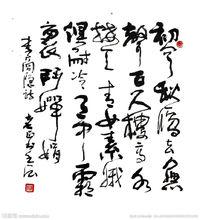 初聞征雁已無
蟬百尺樓高水
接天青女素娥
俱耐冷月中霜
裏鬥嬋娟
李商隱詩